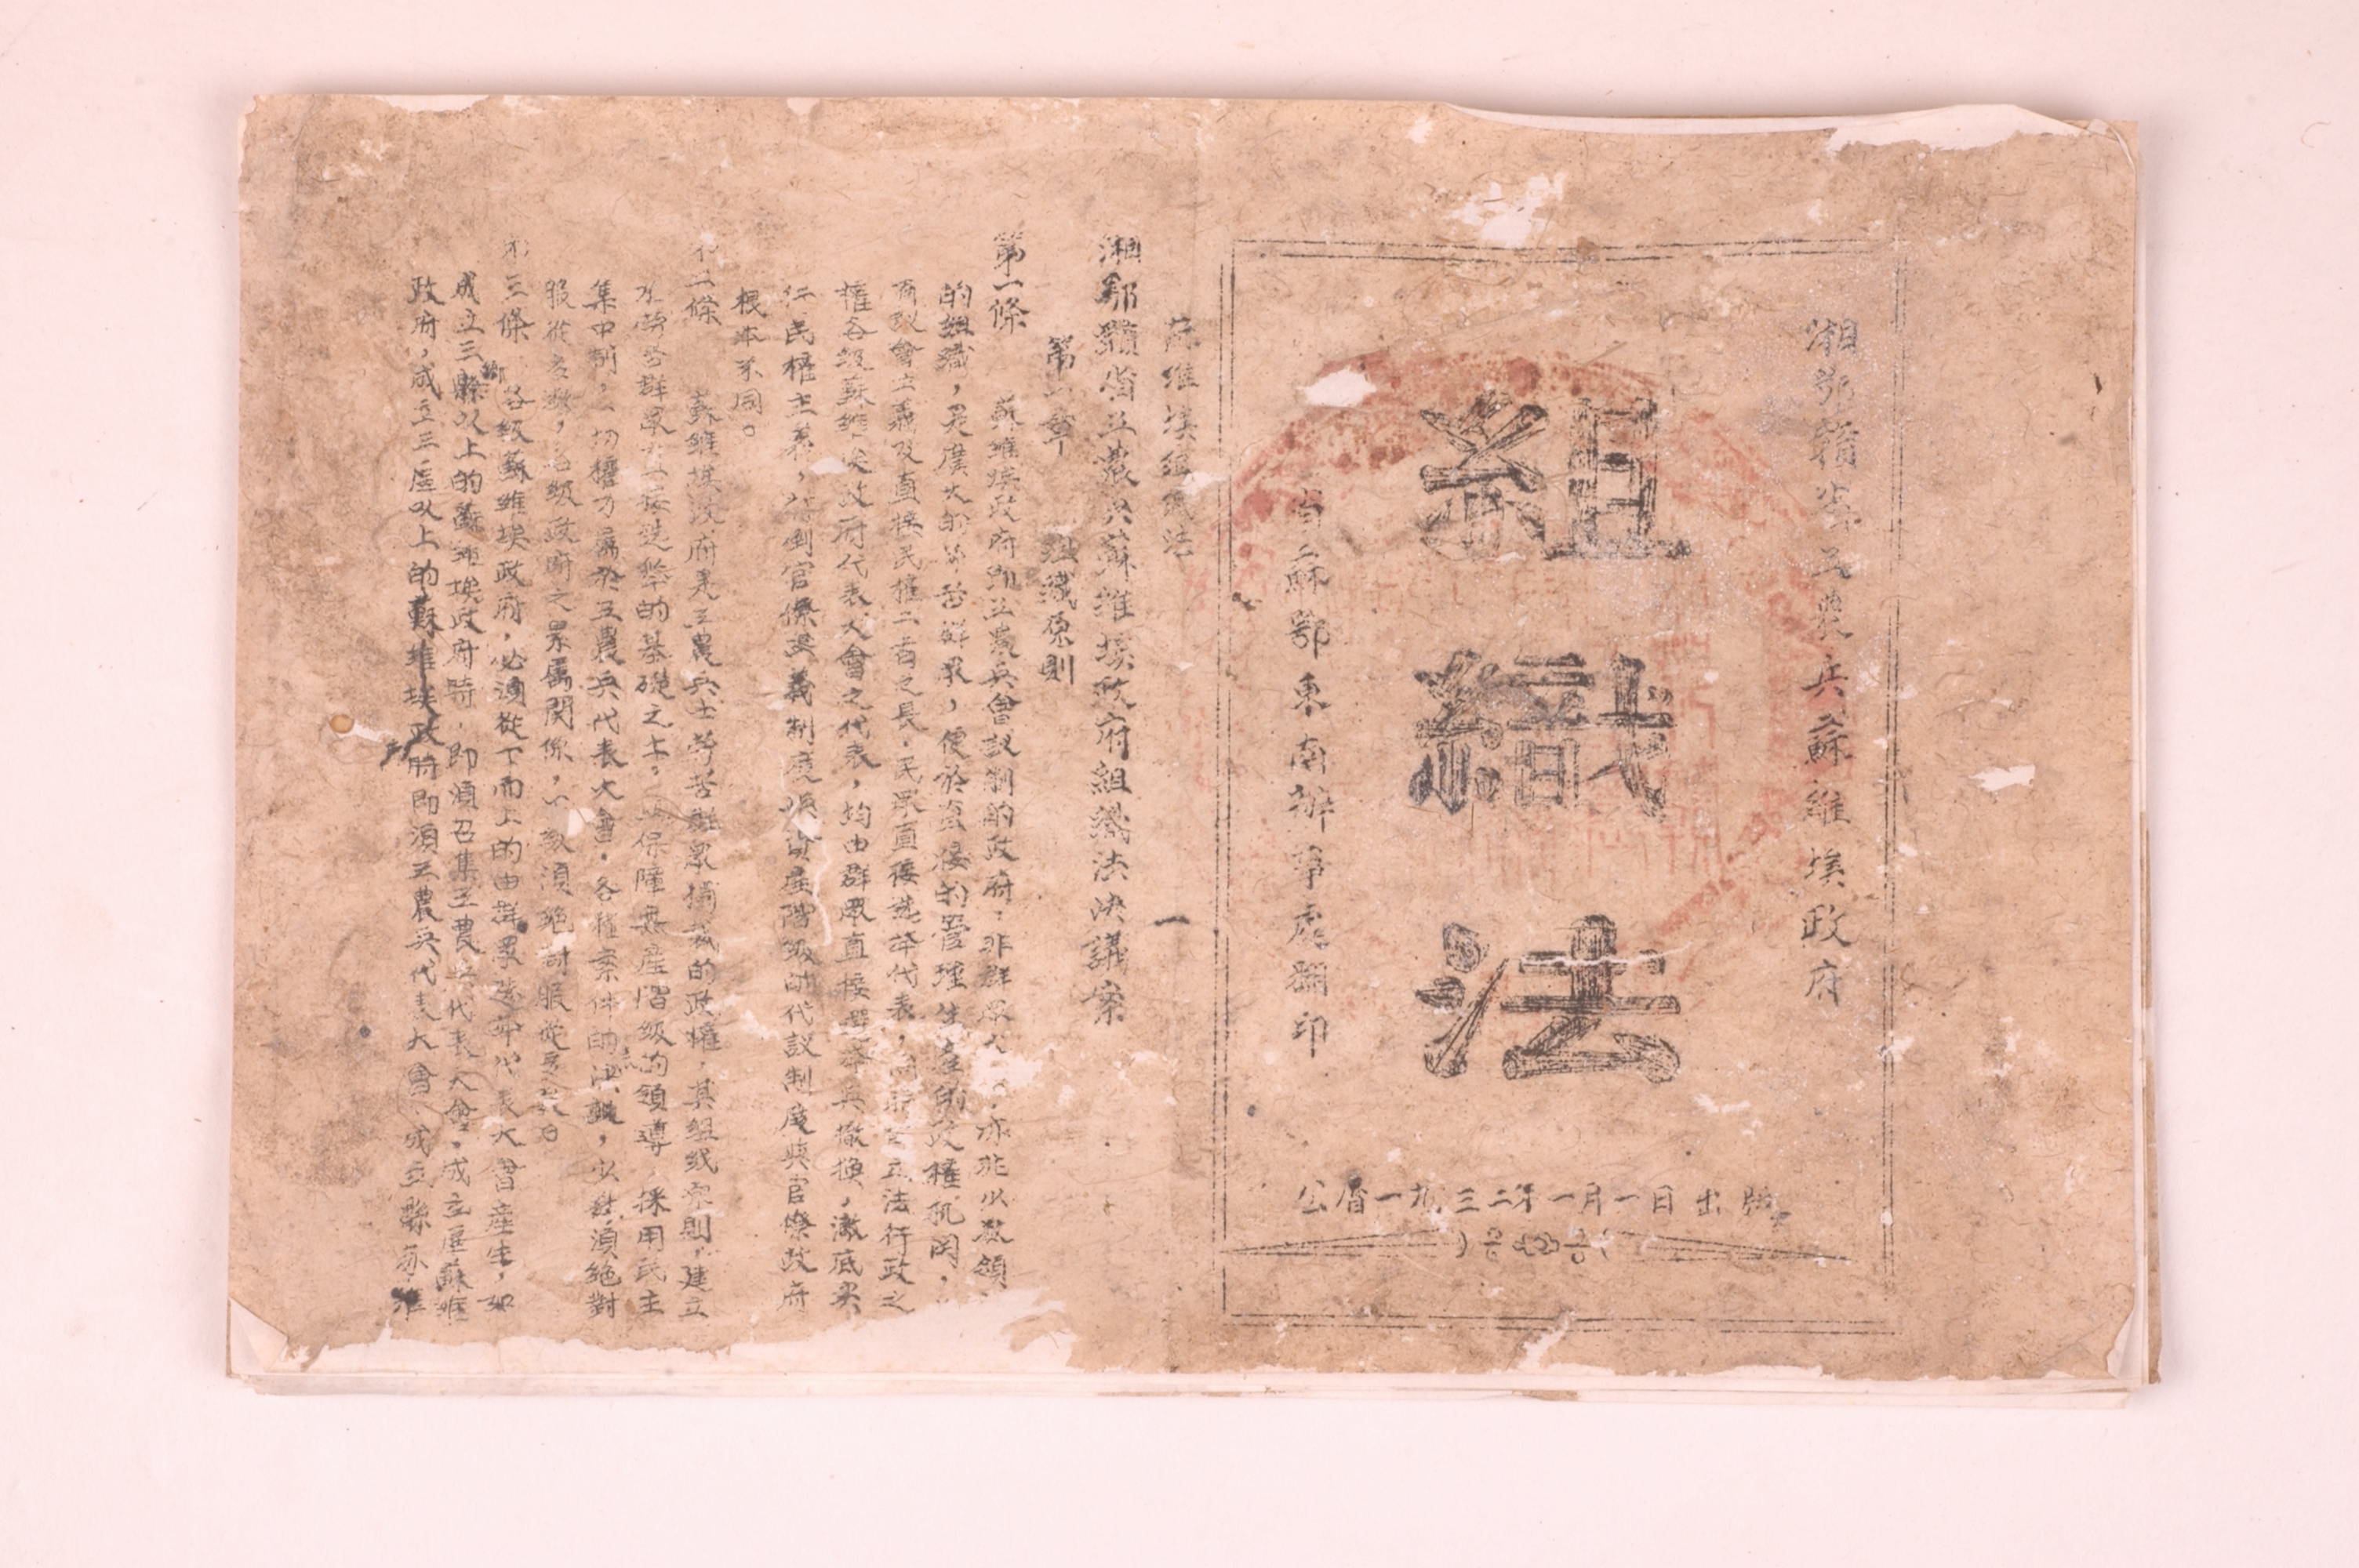 湘鄂贛省工農兵蘇維埃政府
組織法
省蘇鄂東南辦事處翻印
公曆一九三二年一月一日出版
蘇維埃組織法
一
湘鄂贛省工農兵蘇維埃政府組織法決議案
第一章 組織原則
第一條 蘇維埃政府即工農兵會議制的政府，非群眾大，亦非少數領
的組織，是廣大的勞苦群眾，便於直接的管理生產的政權机関，
商議會主義及直接民權二者之長，民眾直接選舉代表，立法行政之
權各級蘇維埃政府代表大會之代表，均由群眾直接選舉與撤換，澈底实
行民權主義，打倒官僚主義制度與資產階級的代議制度與官僚政府
根本不同。
二條 蘇維埃政府是工農兵士勞苦群眾擁護的政權，其組織原則，建立
在勞苦群眾直接选举的基礎之上，保障無產階级的領導，採用民主
集中制，一切權力屬於工農兵代表大會，各種案件的決議，少數須絕對
服從多數，各級政府之隸屬関係，下級須絕對服從
三條 各級蘇維埃政府，必須從下而上的由群眾选举代表大會產生，如
成立三鄉以上的蘇維埃政府時，即須召集工農兵代表大會，成立區蘇維
政府，成立三區以上的蘇維埃政府即須工農兵代表大會，成立縣蘇維